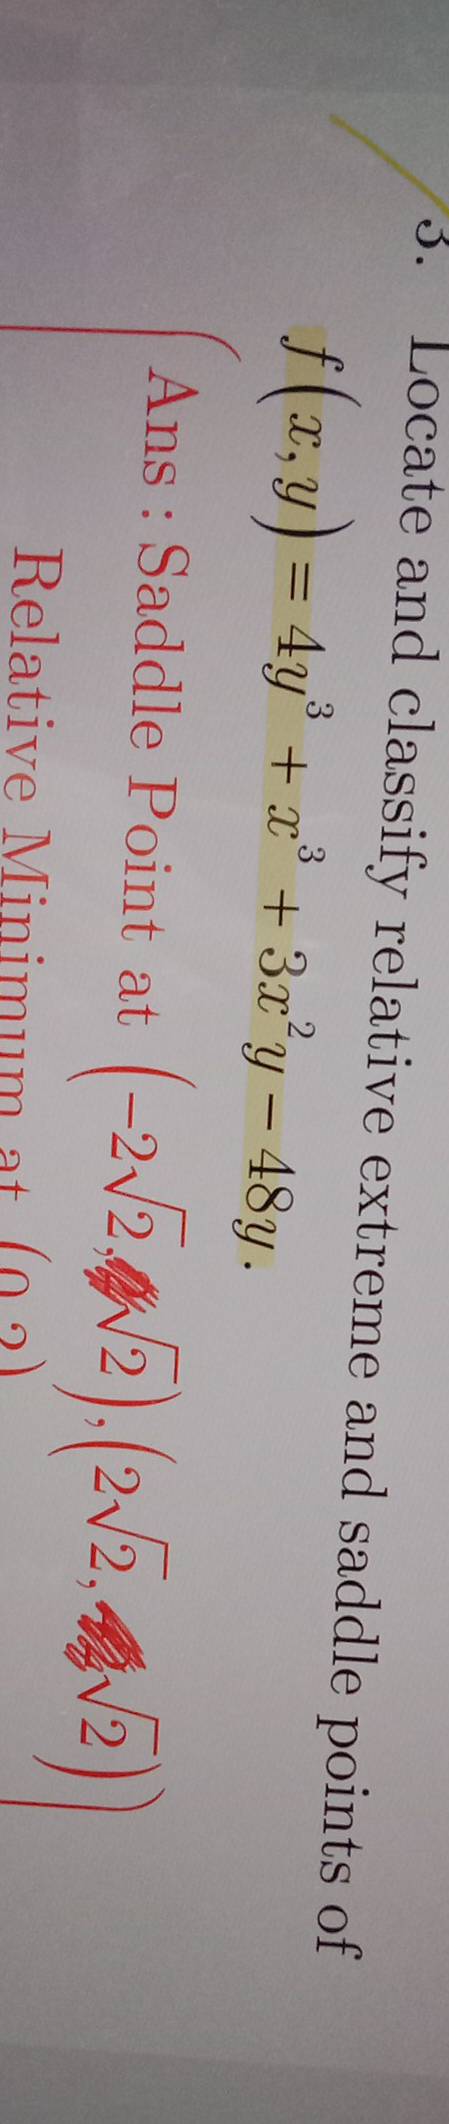 3. Locate and classify relative extreme and saddle points of
f(x, y) = 4y³ + x³ + 3x²y − 48y.
Ans : Saddle Point at (−2√2, √2), (2√2, √2)
Relative Minimum at (0,2)